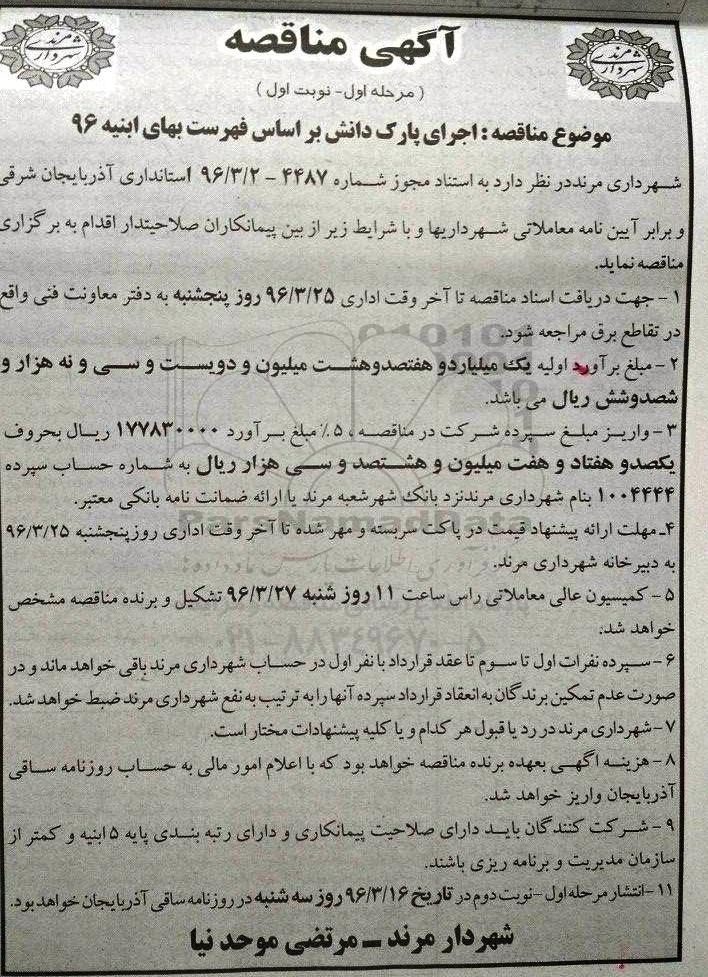 آگهی مناقصه
( مرحله اول- نوبت اول )
موضوع مناقصه : اجرای پارک دانش بر اساس فهرست بهای ابنیه ۹۶
شهرداری مرنددر نظر دارد به استناد مجوز شماره ۴۴۸۷ – ۹۶/۳/۲ استانداری آذربایجان شرقی
و برابر آیین نامه معاملاتی شهرداریها و با شرایط زیر از بین پیمانکاران صلاحیتدار اقدام به برگزاری
مناقصه نماید.
۱ – جهت دریافت اسناد مناقصه تا آخر وقت اداری ۹۶/۳/۲۵ روز پنجشنبه به دفتر معاونت فنی واقع
در تقاطع برق مراجعه شود.
۲ – مبلغ برآورد اولیه یک میلیاردو هفتصدوهشت میلیون و دویست و سی و نه هزار و
شصدوشش ریال می باشد.
۳ – واریز مبلغ سپرده شرکت در مناقصه ، ۵٪ مبلغ برآورد ۱۷۷۸۳۰۰۰۰ ریال بحروف
یکصدو هفتاد و هفت میلیون و هشتصد و سی هزار ریال به شماره حساب سپرده
۱۰۰۴۴۴۴ بنام شهرداری مرندنزد بانک شهرشعبه مرند یا ارائه ضمانت نامه بانکی معتبر.
۴ـ مهلت ارائه پیشنهاد قیمت در پاکت سربسته و مهر شده تا آخر وقت اداری روزپنجشنبه ۹۶/۳/۲۵
به دبیرخانه شهرداری مرند.
۵ – کمیسیون عالی معاملاتی راس ساعت ۱۱ روز شنبه ۹۶/۳/۲۷ تشکیل و برنده مناقصه مشخص
خواهد شد.
۶ – سپرده نفرات اول تا سوم تا عقد قرارداد با نفر اول در حساب شهرداری مرند باقی خواهد ماند و در
صورت عدم تمکین برندگان به انعقاد قرارداد سپرده آنها را به ترتیب به نفع شهرداری مرند ضبط خواهد شد.
۷ – شهرداری مرند در رد یا قبول هر کدام و یا کلیه پیشنهادات مختار است.
۸ – هزینه آگهی بعهده برنده مناقصه خواهد بود که با اعلام امور مالی به حساب روزنامه ساقی
آذربایجان واریز خواهد شد.
۹ – شرکت کنندگان باید دارای صلاحیت پیمانکاری و دارای رتبه بندی پایه ۵ ابنیه و کمتر از
سازمان مدیریت و برنامه ریزی باشند.
۱۱ – انتشار مرحله اول –نوبت دوم در تاریخ ۹۶/۳/۱۶ روز سه شنبه در روزنامه ساقی آذربایجان خواهد بود.
شهردار مرند ــ مرتضی موحد نیا
ParsNamadData